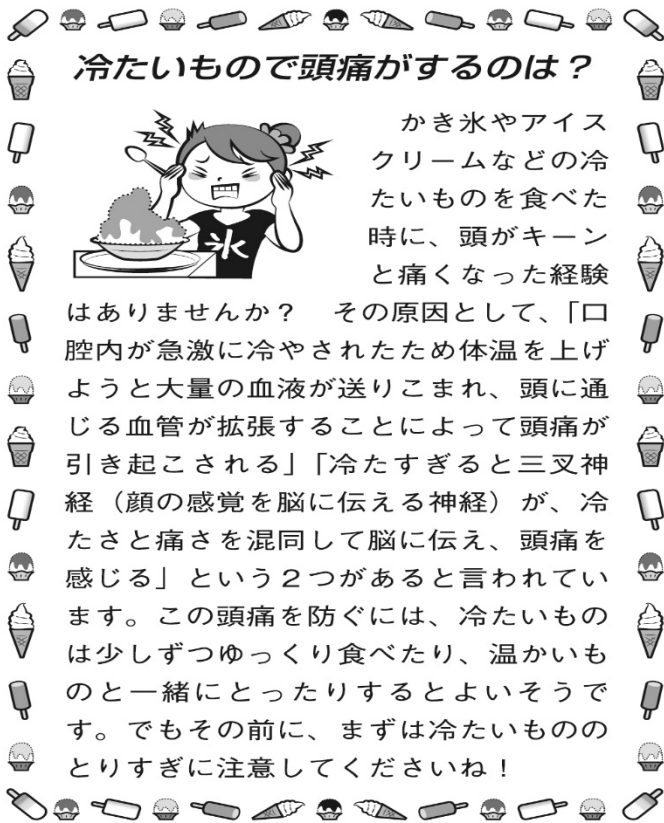 冷たいもので頭痛がするのは？
氷
かき氷やアイス
クリームなどの冷
たいものを食べた
時に、頭がキーン
と痛くなった経験
はありませんか？　その原因として、「口
腔内が急激に冷やされたため体温を上げ
ようと大量の血液が送りこまれ、頭に通
じる血管が拡張することによって頭痛が
引き起こされる」「冷たすぎると三叉神
経（顔の感覚を脳に伝える神経）が、冷
たさと痛さを混同して脳に伝え、頭痛を
感じる」という２つがあると言われてい
ます。この頭痛を防ぐには、冷たいもの
は少しずつゆっくり食べたり、温かいも
のと一緒にとったりするとよいそうで
す。でもその前に、まずは冷たいものの
とりすぎに注意してくださいね！